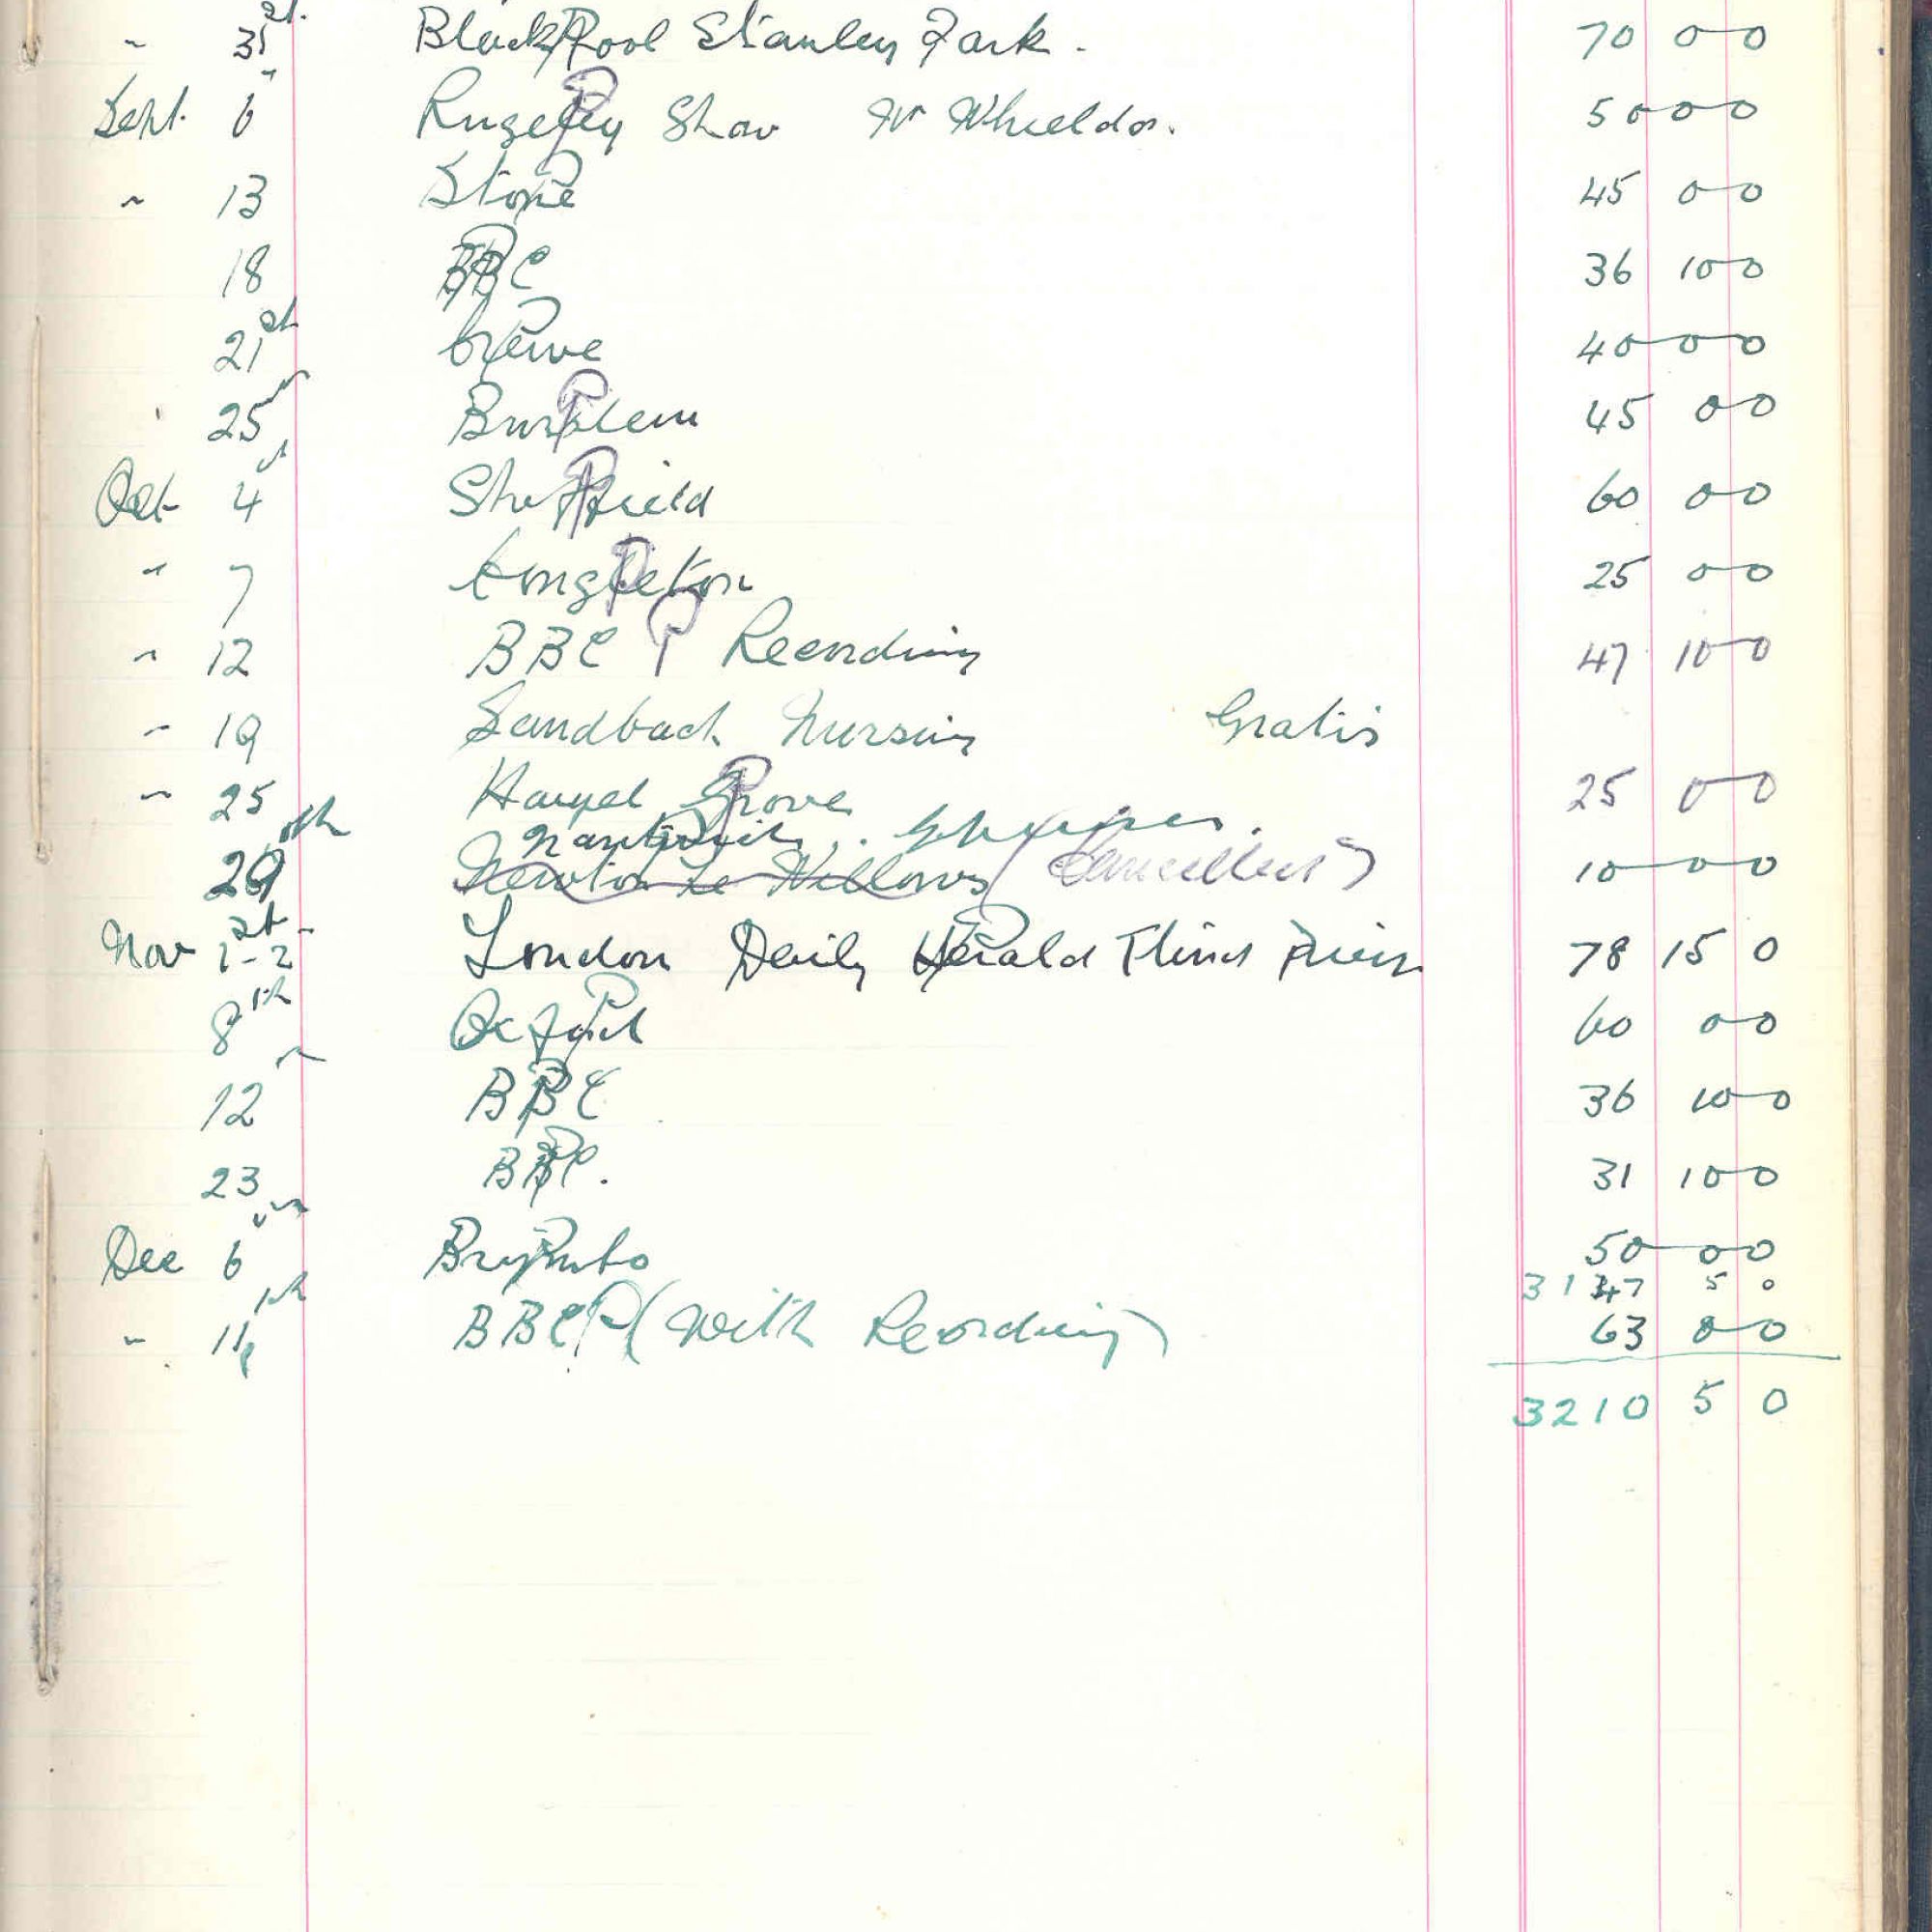 " 31st. BlackPool Stanley Park. 70 0 0
Sept. 6 Rugeley Show Mr Wheeldon. 50 0 0
" 13 Stone 45 0 0
18 BBC 36 10 0
21st Crewe 40 0 0
25 Burslem 45 0 0
Oct 4 Sheffield 60 0 0
" 7 Congleton 25 0 0
" 12 BBC P Recording 47 10 0
" 19 Sandbach Nursing Gratis
" 25 Hazel Grove 25 0 0
Nantwich
29th Newton Le Willows (Cancelled) 10 0 0
Nov 1st-2 London Daily Herald 78 15 0
8th Oxford 60 0 0
12 BBC 36 10 0
23 BBC. 31 10 0
Dec 6 Brymbo 50 0 0
3147 5 0
" BBC P (With Recording) 63 0 0
3210 5 0